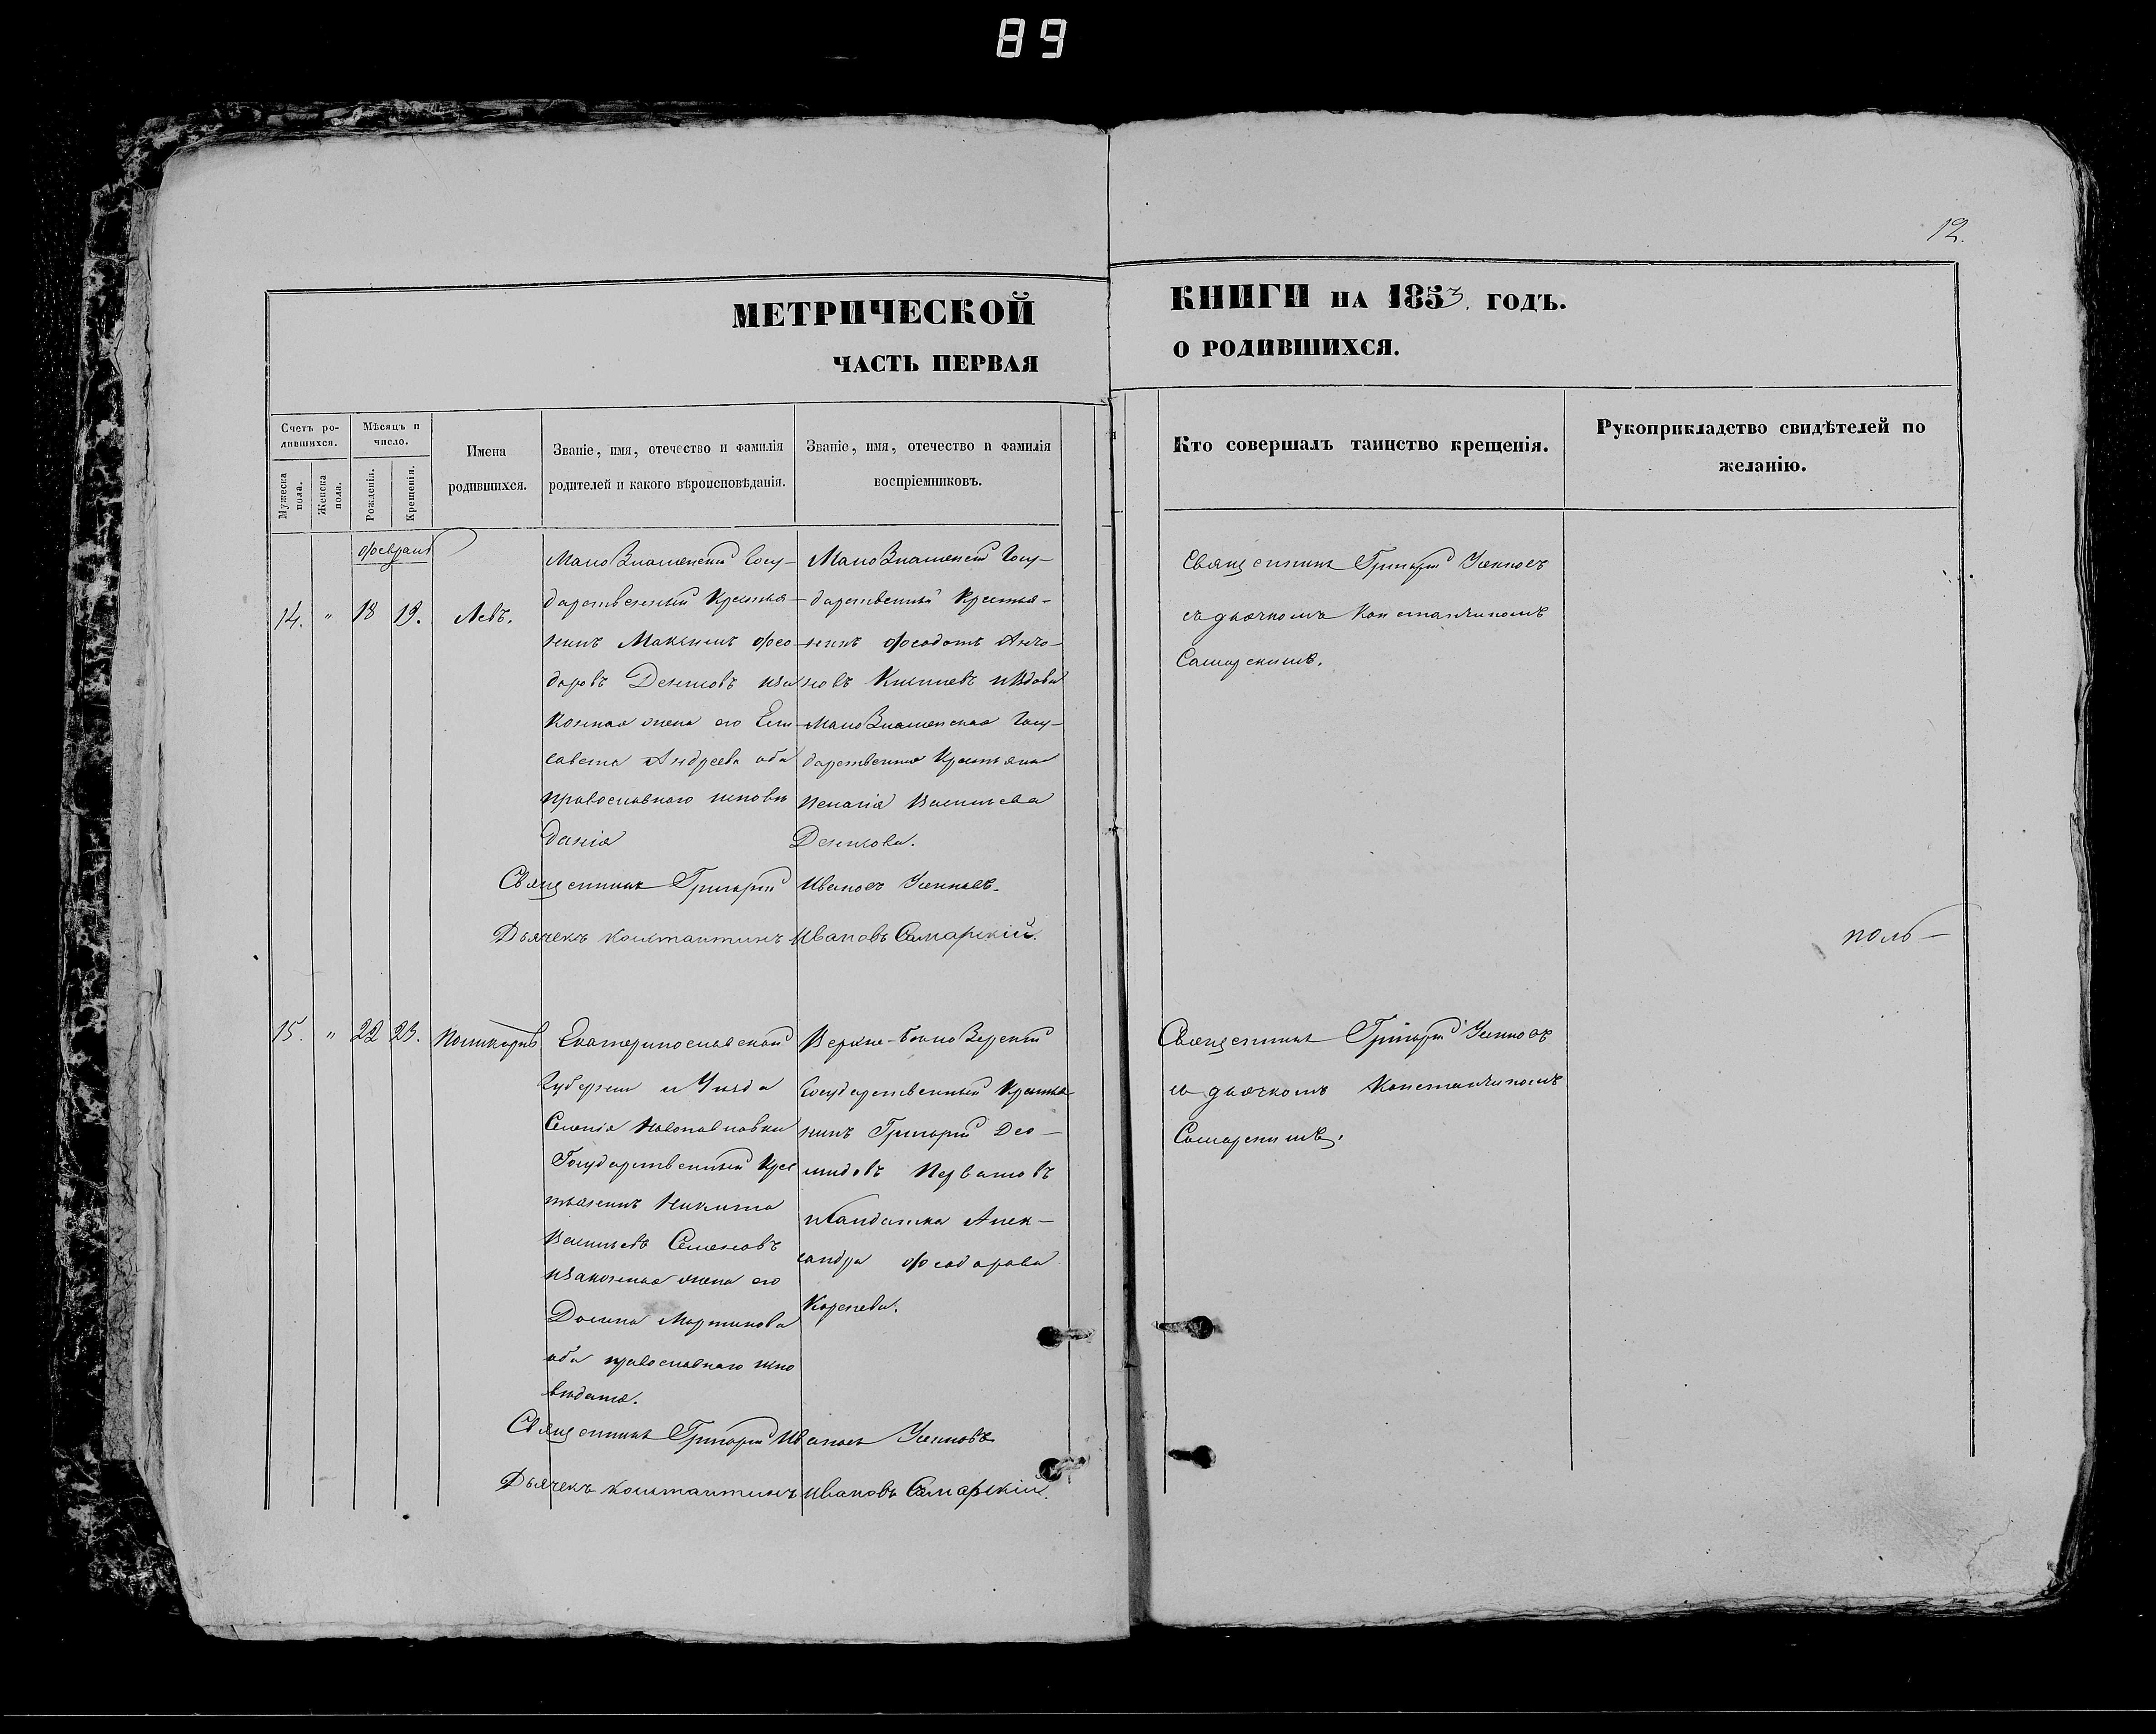 89
12.
МЕТРИЧЕСКОЙ
ЧАСТЬ ПЕРВАЯ
КНИГИ НА 1853. ГОДЪ.
О РОДИВШИХСЯ.
Счетъ ро-
дившихся.
Мужеска пола.
Женска пола.
Мѣсяцъ и
число.
Рожденія.
Крещенія.
Имена
родившихся.
Званіе, имя, отечество и фамилія
родителей и какого вѣроисповѣданія.
Званіе, имя, отечество и фамилія
воспріемниковъ.
Кто совершалъ таинство крещенія.
Рукоприкладство свидѣтелей по
желанію.
Февраля
14. " 18 19. Левъ.
МалоЗнаменскій Госу-
дарственный Крестья-
нинъ Максимъ Ѳео-
доровъ Денисовъ иза
конная жена его Ели
савета Андреева оба
православнаго исповѣ
данія
МалоЗнаменскій Госу-
дарственный Крестья-
нинъ Ѳеодотъ
новъ ивдова
МалоЗнаменская Госу-
дарственная Крестьянка
Пелагія Васильева
Денисова.
Священникъ Григорій
съ дьячкомъ Константиномъ
Самарскимъ.
Священникъ Григорій Ивановъ
Дьячекъ Константинъ Ивановъ Самарскій.
поль-
15. " 22 23. Поликарпъ
Екатеринославской
Губерніи и Уѣзда
Селенія Новопавловки
Государственный Крес
тьянинъ Никита
Васильевъ Семеновъ
изаконная жена его
Домна Мартинова
оба православнаго испо
вѣданія.
Верхне-БѣлоЗерскій
Государственный Крестья
нинъ Григорій Део-
мидовъ
исолдатка Алек-
сандра Ѳеодорова
Корнева.
Священникъ Григорій
съ дьячкомъ Константиномъ
Самарскимъ.
Священникъ Григорій Ивановъ
Дьячекъ Константинъ Ивановъ Самарскій.